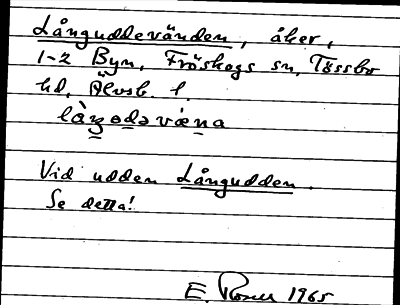 Långuddevänden, åker,
1-2 Byn, Fröskogs sn, Tössbo
hd, Älvsb. l.
Vid udden Långudden.
Se detta!
E. 1965